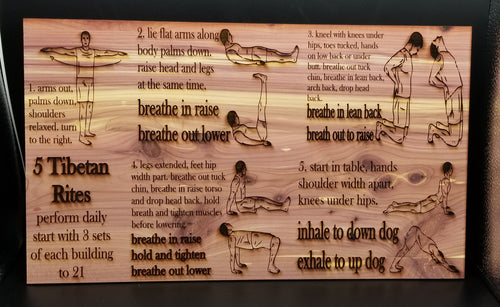 1. arms out,
palms down,
shoulders
relaxed. turn
to the right.
2. lie flat arms along
body palms down,
raise head and legs
at the same time.
breathe in raise
breathe out lower
3. kneel with knees under
hips, toes tucked, hands
on low back or under
butt. breathe out tuck
chin, breathe in lean back,
arch back, drop head
back.
breathe in lean back
breath out to raise
5 Tibetan
Rites
perform daily
start with 3 sets
of each building
to 21
4. legs extended, feet hip
width part. breathe out tuck
chin, breathe in raise torso
and drop head back. hold
breath and tighten muscles
before lowering
breathe in raise
hold and tighten
breathe out lower
5. start in table, hands
shoulder width apart,
knees under hips.
inhale to down dog
exhale to up dog